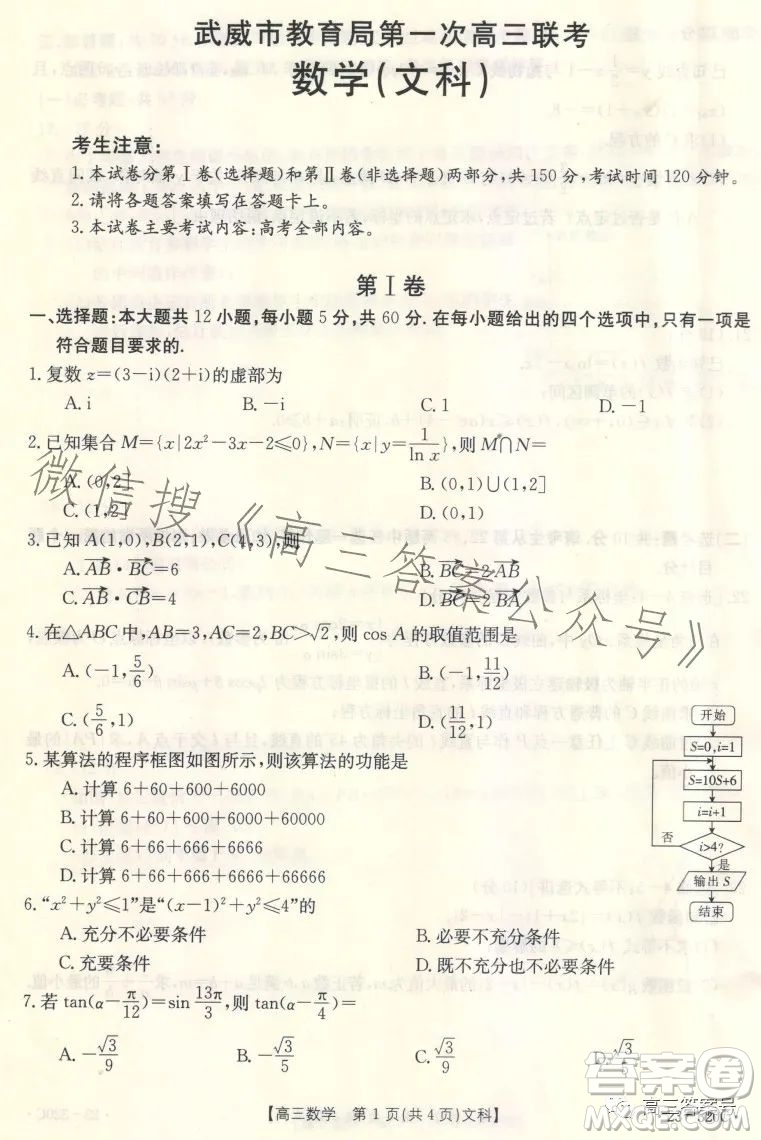 武威市教育局第一次高三联考
数学(文科)
考生注意:
1.本试卷分第Ⅰ卷(选择题)和第Ⅱ卷(非选择题)两部分,共150分,考试时间120分钟。
2.请将各题答案填写在答题卡上。
3.本试卷主要考试内容:高考全部内容。
第Ⅰ卷
一、选择题:本大题共12小题,每小题5分,共60分.在每小题给出的四个选项中,只有一项是
符合题目要求的.
1.复数z=(3-i)(2+i)的虚部为
A.i B.-i C.1 D.-1
2.已知集合M={x|2x²-3x-2≤0},N={x|y=1/ln x},则M∩N=
A.(0,2] B.(0,1)∪(1,2]
C.(1,2] D.(0,1)
3.已知A(1,0),B(2,1),C(4,3),则
A.AB→·BC→=6 B.BC→=2AB→
C.AB→·CB→=4 D.BC→=2BA→
4.在△ABC中,AB=3,AC=2,BC>√2,则cos A的取值范围是
A.(-1,5/6) B.(-1,11/12)
C.(5/6,1) D.(11/12,1)
5.某算法的程序框图如图所示,则该算法的功能是
A.计算6+60+600+6000
B.计算6+60+600+6000+60000
C.计算6+66+666+6666
D.计算6+66+666+6666+66666
开始
S=0,i=1
S=10S+6
i=i+1
i>4?
否
是
输出S
结束
6.“x²+y²≤1”是“(x-1)²+y²≤4”的
A.充分不必要条件 B.必要不充分条件
C.充要条件 D.既不充分也不必要条件
7.若tan(α-π/12)=sin 13π/3,则tan(α-π/4)=
A.-√3/9 B.-√3/5 C.√3/9 D.√3/5
【高三数学 第1页(共4页)文科】
·23-320C·
微信搜《高三答案公众号》
高三答案号
答案圈
MXQE.COM